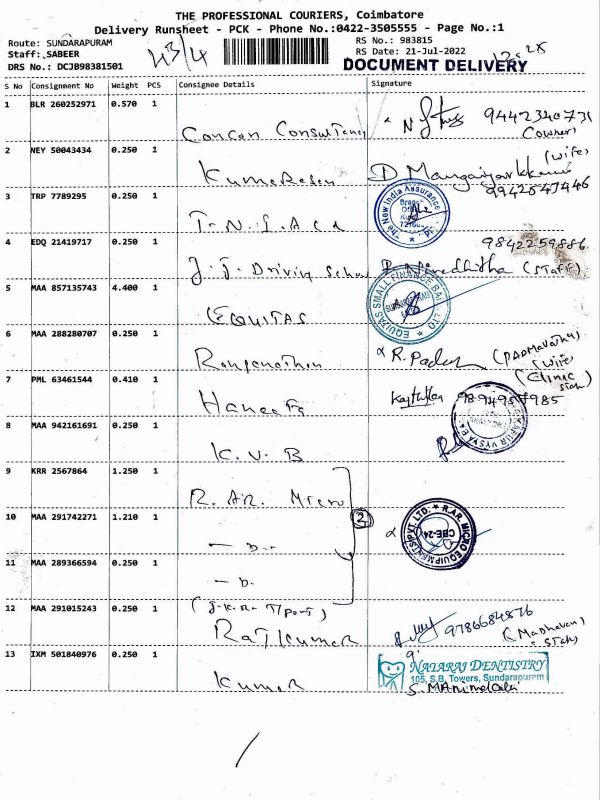 THE PROFESSIONAL COURIERS, Coimbatore
Delivery Runsheet - PCK - Phone No.:0422-3505555 - Page No.:1
Route: SUNDARAPURAM
Staff: SABEER
DRS No.: DCJB98381501
RS No.: 983815
RS Date: 21-Jul-2022
DOCUMENT DELIVERY
S No Consignment No Weight PCS Consignee Details Signature
1 BLR 260252971 0.570 1 Concen Consultency 9442340731
2 NEY 50043434 0.250 1 Kumaresen D. (Wife)
9942547446
3 TRP 7789295 0.250 1 The New India Assurance
4 EDQ 21419717 0.250 1 J. J. Driving School 9842259886
(Staff)
5 MAA 857135743 4.400 1 EQUITAS EQUITAS SMALL FINANCE BANK LTD
6 MAA 288280707 0.250 1 R. (PADMavathy)
(Wife)
7 PML 63461544 0.410 1 Haneefa 9894957985
(Clinic
8 MAA 942161691 0.250 1 K. V. B
9 KRR 2567864 1.250 1 R. AR. Micro
10 MAA 291742271 1.210 1 2 R.A.R. MICRO EQUIPMENTS PVT. LTD.
CBE-24
11 MAA 289366594 0.250 1
12 MAA 291015243 0.250 1 (J.K.R. T/Port)
RajKumar 9786684876
(Madhavan)
13 IXM 501840976 0.250 1 Kumar NATARAJ DENTISTRY
105, S.B. Towers, Sundarapuram